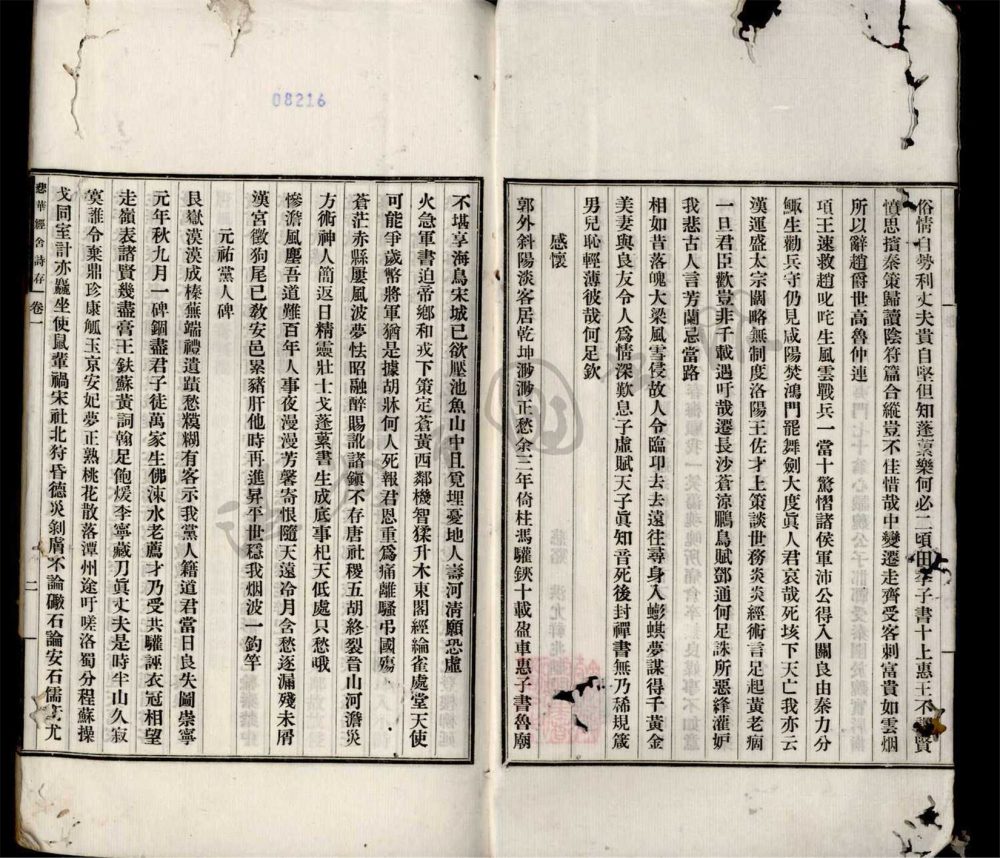 俗情自勢利丈夫貴自堅但知蓬藁樂何必二頃田季子書十上惠王不謂賢
憤思擯秦策歸讀陰符篇合縱豈不佳惜哉中變遷走齊受客刺富貴如雲烟
所以辭趙爵世高魯仲連
項王速救趙叱咤生風雲戰兵一當十驚慴諸侯軍沛公得入關良由秦力分
鯫生勸兵守仍見咸陽焚鴻門罷舞劍大度眞人君哀哉死垓下天亡我亦云
漢運盛太宗闊略無制度洛陽王佐才上策談世務炎炎經術言足起黃老痼
一旦君臣歡豈非千載遇吁哉遷長沙蒼涼鵩鳥賦鄧通何足誅所惡絳灌妒
我悲古人言芳蘭忌當路
相如昔落魄大梁風雪侵故人令臨卭去去遠往尋身入蟛蜞夢謀得千黃金
美妻與良友令人爲情深歎息子虛賦天子眞知音死後封禪書無乃稀規箴
男兒恥輕薄彼哉何足欽
感懷
郭外斜陽淡客居乾坤渺渺正愁余三年倚柱馮驩鋏十載盈車惠子書魯廟
不堪享海鳥宋城已欲殃池魚山中且覓埋憂地人壽河清願恐虛
火急軍書迫帝鄉和戎下策定蒼黃西鄰機智猱升木東閣經綸雀處堂天使
可能爭歲幣將軍猶是據胡牀何人死報君恩重爲痛離騷弔國殤
蒼茫赤縣屢風波夢怯昭融醉賜訛諸鎭不存唐社稷五胡終裂晉山河澹災
方術神人簡返日精靈壯士戈蓬藁書生成底事杞天低處只愁哦
慘澹風塵吾道難百年人事夜漫漫芳馨寄恨隨天遠冷月含愁逐漏殘未屑
漢宮徵狗尾已敎安邑累豬肝他時再進昇平世穩我烟波一釣竿
元祐黨人碑
艮嶽漠漠成榛蕪端禮遺蹟愁糢糊有客示我黨人籍道君當日良失圖崇寧
元年秋九月一碑錮盡君子徒萬家生佛涑水老薦才乃受共驩誣衣冠相望
走嶺表諸賢幾盡膏王鈇蘇黃詞翰足飽煖李寧藏刀眞丈夫是時半山久寂
寞誰令棄鼎珍康瓠玉京安妃夢正熟桃花散落潭州途吁嗟洛蜀分程蘇操
戈同室計亦麤坐使鼠輩禍宋社北狩昏德災剝膚不論礮石論安石儒 尤
悲華經舍詩存 卷一
二
08216